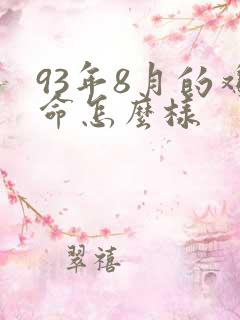 93年8月的
命怎麼樣
翠禧